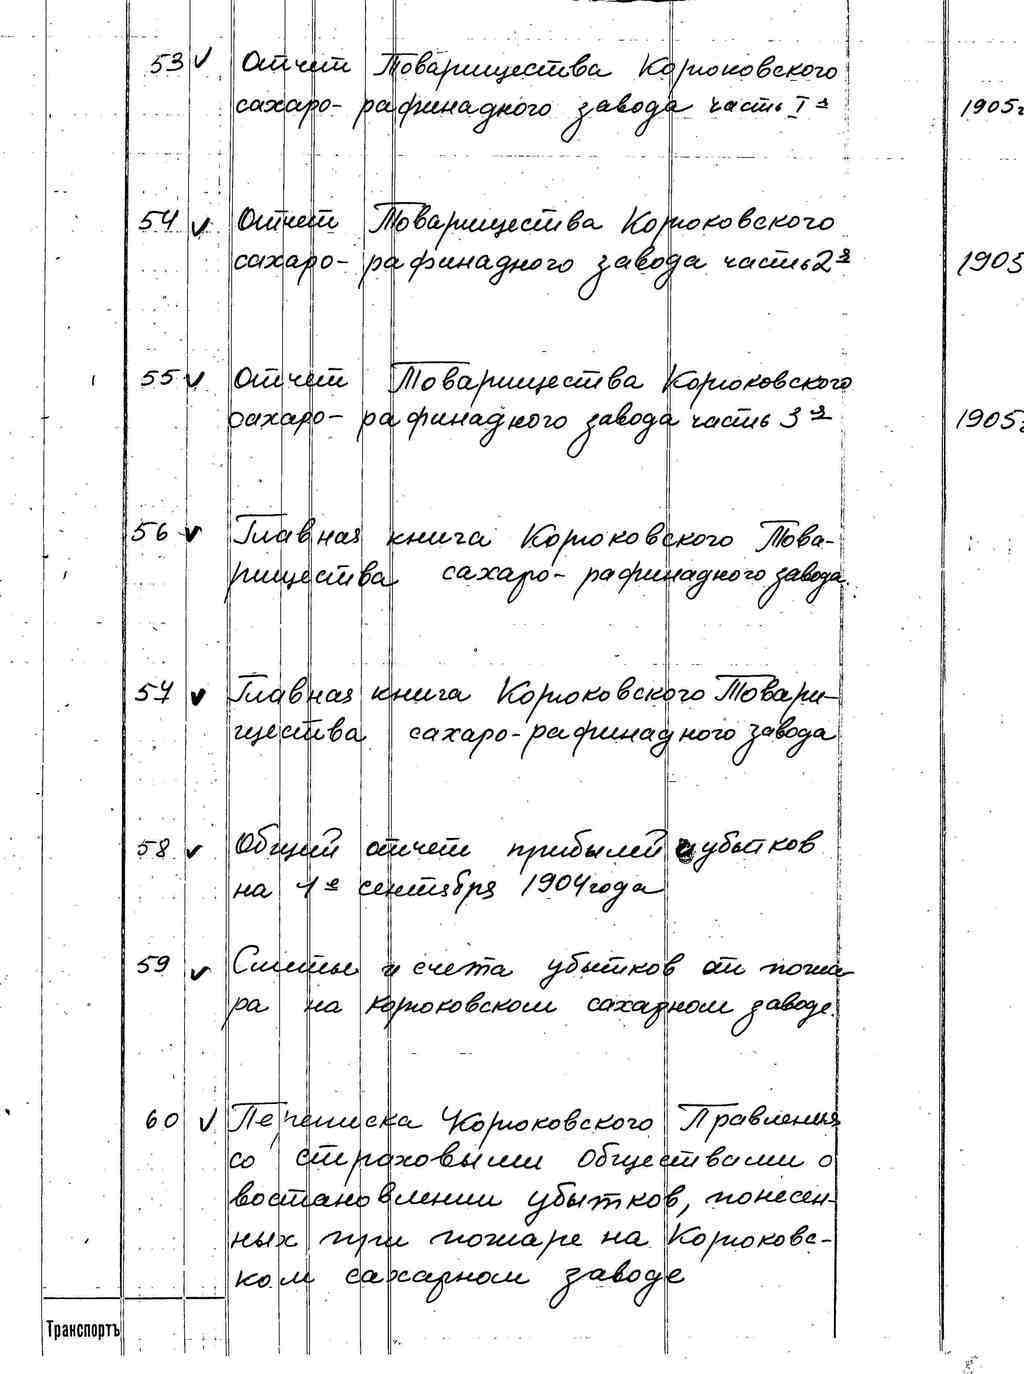 53 ✓ Отчет Товарищества Корюковского
сахаро- рафинадного завода часть I-я 1905г
54 ✓ Отчет Товарищества Корюковского
сахаро- рафинадного завода часть 2я 1905
55 ✓ Отчет Товарищества Корюковского
сахаро- рафинадного завода часть 3я 1905г
56 ✓ Главная книга Корюковского Това-
рищества сахаро- рафинадного завода.
57 ✓ Главная книга Корюковского Товари-
щества сахаро- рафинадного завода
58 ✓ Общий отчет прибылей и убытков
на 1е сентября 1904 года
59 ✓ Сметы и счета убытков от пожа-
ра на Корюковском сахарном заводе.
60 ✓ Переписка Корюковского Правления
со страховыми обществами о
востановлении убытков, понесен-
ных при пожаре на Корюковс-
ком сахарном заводе
Транспортъ